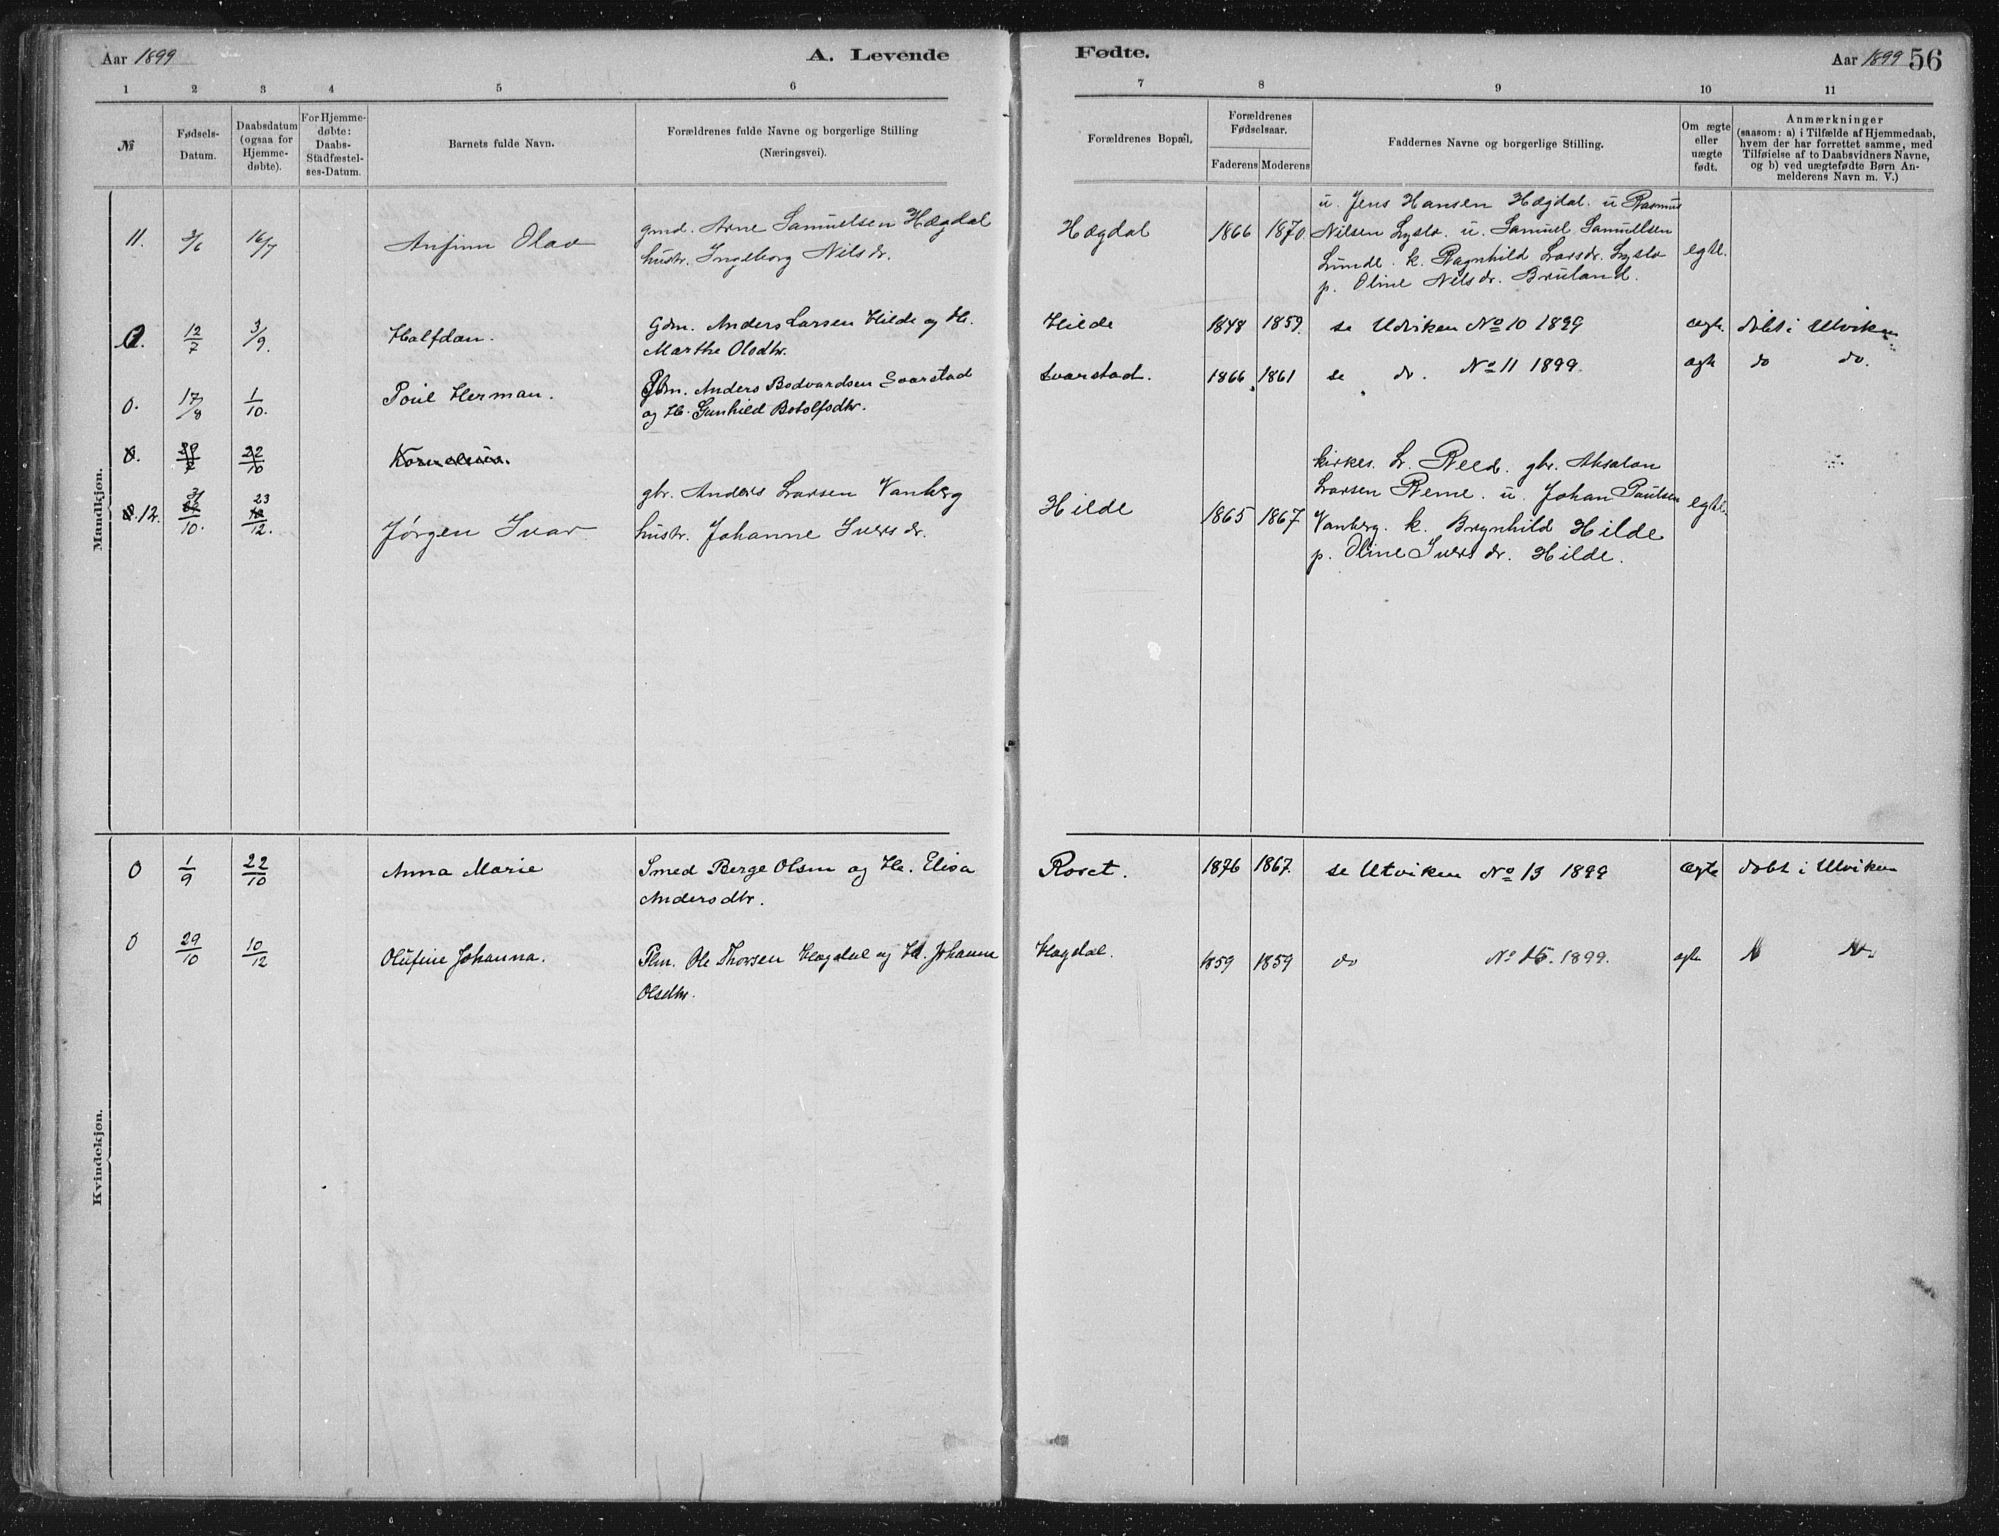 Aar 1899
A. Levende
Fødte.
Aar 1899 56
1 2 3 4 5 6 7 8 9 10 11
№
Fødsels-
Datum.
Daabsdatum
(ogsaa for
Hjemme-
døbte).
For Hjemme-
døbte:
Daabs-
Stadfæstel-
ses-Datum.
Barnets fulde Navn.
Forældrenes fulde Navne og borgerlige Stilling
(Næringsvei).
Forældrenes Bopæl.
Forældrenes
Fødselsaar.
Faderens Moderens
Faddernes Navne og borgerlige Stilling.
Om ægte
eller
uægte
født.
Anmærkninger
(saasom: a) i Tilfælde af Hjemmedaab,
hvem der har forrettet samme, med
Tilføielse af to Daabsvidners Navne,
og b) ved uægtefødte Børn An-
melderens Navn m. V.)
Mandkjøn.
11. 3/6 16/7 Anfinn Olav
gmd. Arne Samuelsen Hægdal
hustr. Ingeborg Nilsdr.
Hægdal 1866 1870
u. Jens Hansen Hægdal. u Rasmus
Nilsen Lyslo. u. Samuel Samuelsen
Lunde. k. Ragnhild Larsdr. Lyslo
p. Oline Nilsdr. Bruland.
egte.
12/7 3/9 Halfdan.
Gdm. Anders Larsen Hilde og H.
Marthe Olsdtr.
Hilde 1848 1859. se Udviken No 10 1899 ægte. døbt i Utviken
0. 17/8 1/10. Poul Herman.
Pbm. Anders Bodvardsen Svarstad
og H. Gunhild Botolfsdtr.
Svarstad. 1866 1861 se do. No 11 1899. ægte do do.
0. 22/10 Kornelius.
12. 31/10. 23/12. Jørgen Ivar
gbr. Anders Larsen Vanberg
hustr. Johanne Iversdr.
Hilde 1865 1867
kirkes. L. Reed. gbr. Absalon
Larsen Reme. u. Johan Paulsen
Vanberg. k. Brynhild Hilde
p. Oline Iversdr. Hilde.
egte.
Kvindekjøn.
0 1/9 22/10 Anna Marie
Smed Berge Olsen og H. Elisa
Andersdtr.
Roset. 1876 1867. se Utviken No 13 1899 ægte døbt i Utviken
0 29/10 10/12 Olufine Johanna.
Plm. Ole Thorsen Hægdal og H. Johanna
Olsdtr.
Hægdal. 1859 1859 do No 15. 1899. ægte